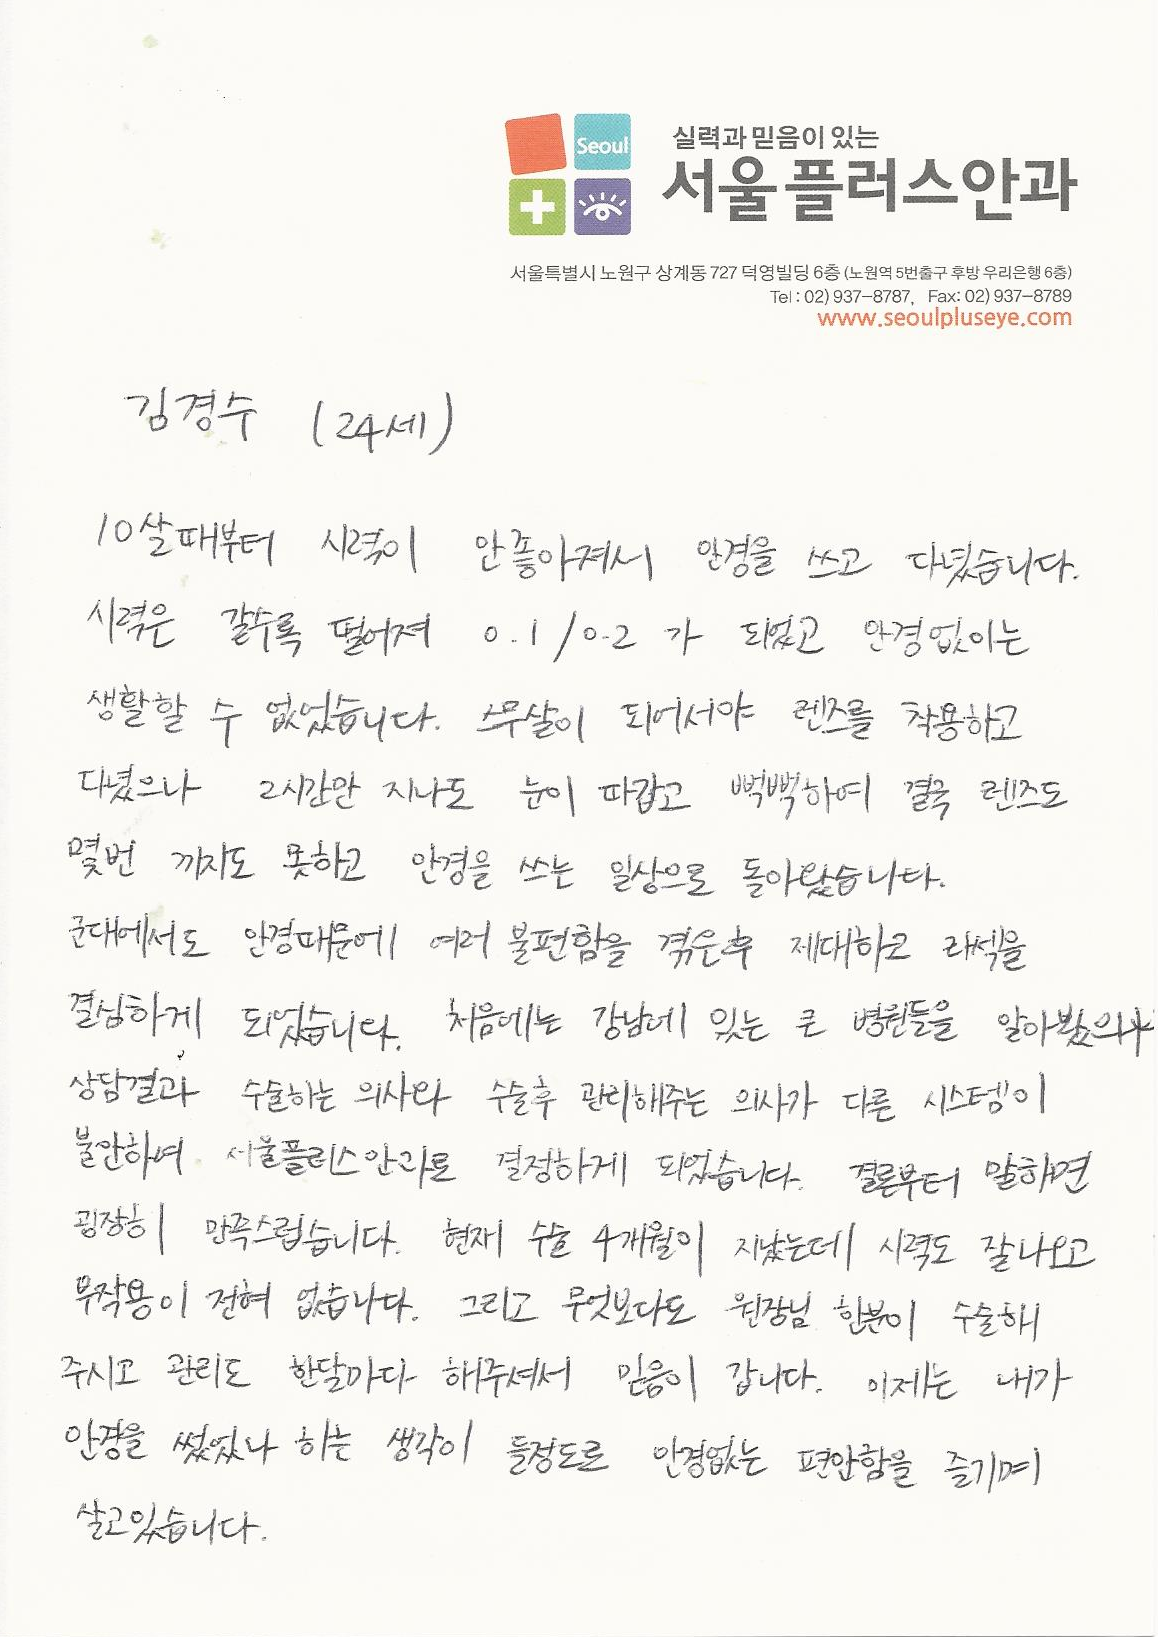 Seoul
실력과 믿음이 있는
서울플러스안과
서울특별시 노원구 상계동 727 덕영빌딩 6층 (노원역 5번출구 후방 우리은행 6층)
Tel : 02) 937-8787,  Fax: 02) 937-8789
www.seoulpluseye.com
김경수 (24세)
10살때부터 시력이 안좋아져서 안경을 쓰고 다녔습니다.
시력은 갈수록 떨어져 0.1/0.2가 되었고 안경없이는
생활할 수 없었습니다. 스무살이 되어서야 렌즈를 착용하고
다녔으나 2시간만 지나도 눈이 따갑고 뻑뻑하여 결국 렌즈도
몇번 까지도 못하고 안경을 쓰는 일상으로 돌아왔습니다.
군대에서도 안경때문에 여러 불편함을 겪은후 제대하고 라섹을
결심하게 되었습니다. 처음에는 강남에 있는 큰 병원들을 알아봤으나
상담결과 수술하는 의사와 수술후 관리해주는 의사가 다른 시스템이
불안하여 서울플러스안과로 결정하게 되었습니다. 결론부터 말하면
굉장히 만족스럽습니다. 현재 수술 4개월이 지났는데 시력도 잘나오고
부작용이 전혀 없습니다. 그리고 무엇보다도 원장님 한분이 수술해
주시고 관리도 한달마다 해주셔서 믿음이 갑니다. 이제는 내가
안경을 썼었나 하는 생각이 들정도로 안경없는 편안함을 즐기며
살고있습니다.